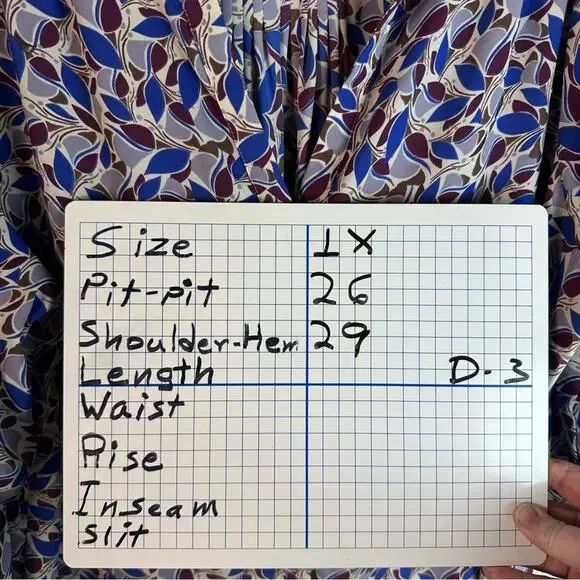 Size 1X
Pit-pit 26
Shoulder-Hem 29
Length D-3
Waist
Rise
Inseam
Slit